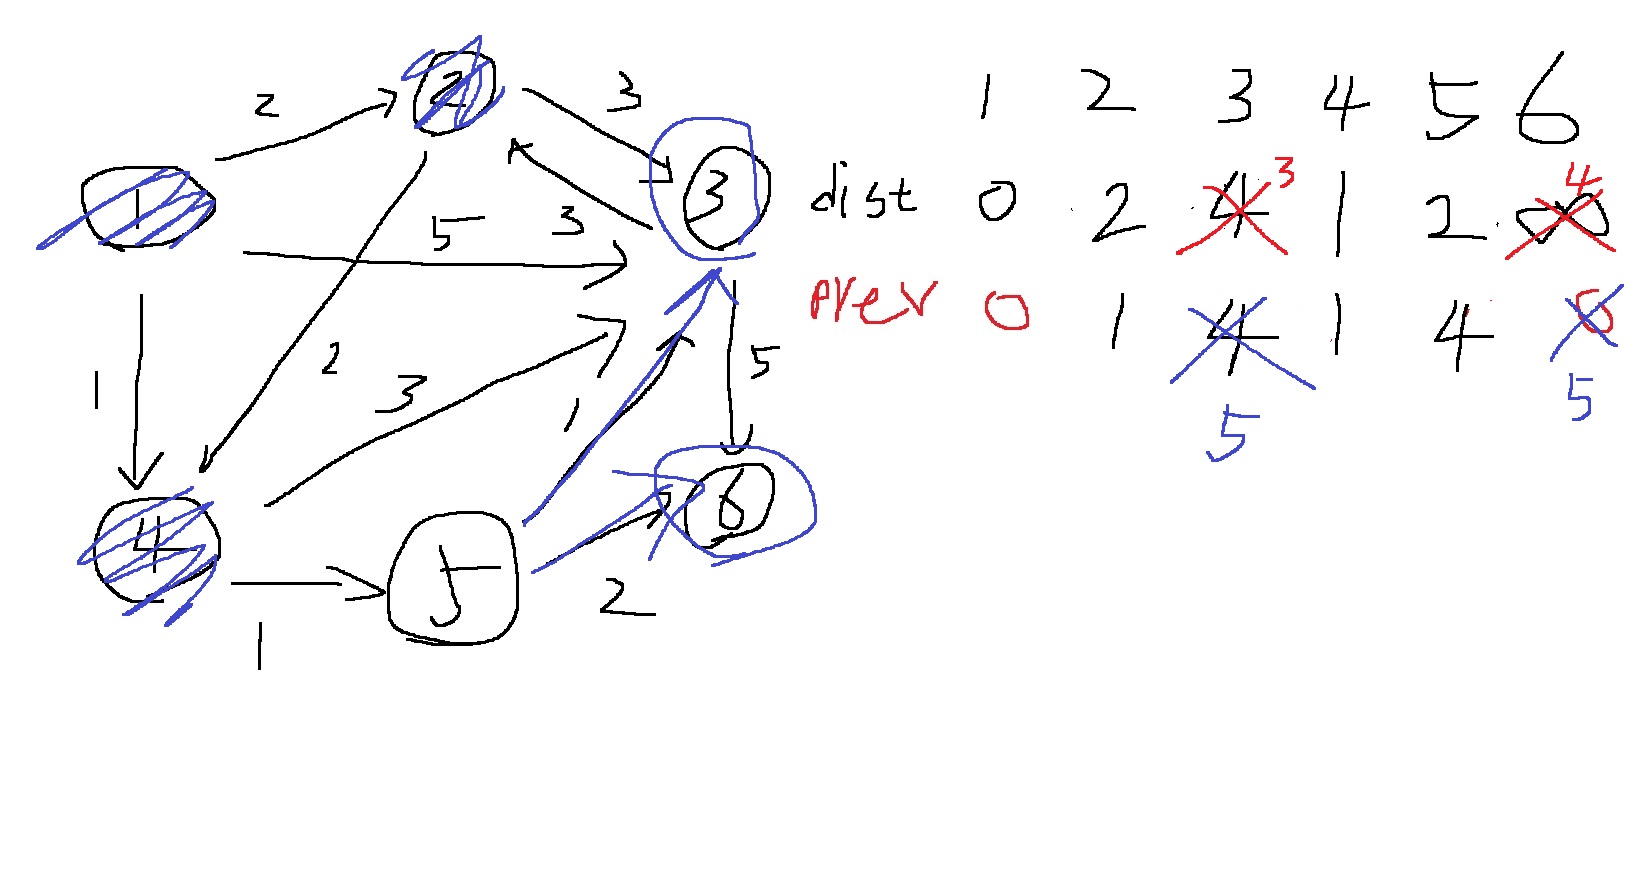 1 2 3 4 5 6
dist 0 2 4 3 1 2 ∞ 4
prev 0 1 4 1 4 0
5 5
2
2
3
1
5
3
3
2
3
1
5
1
4
6
5
2
1